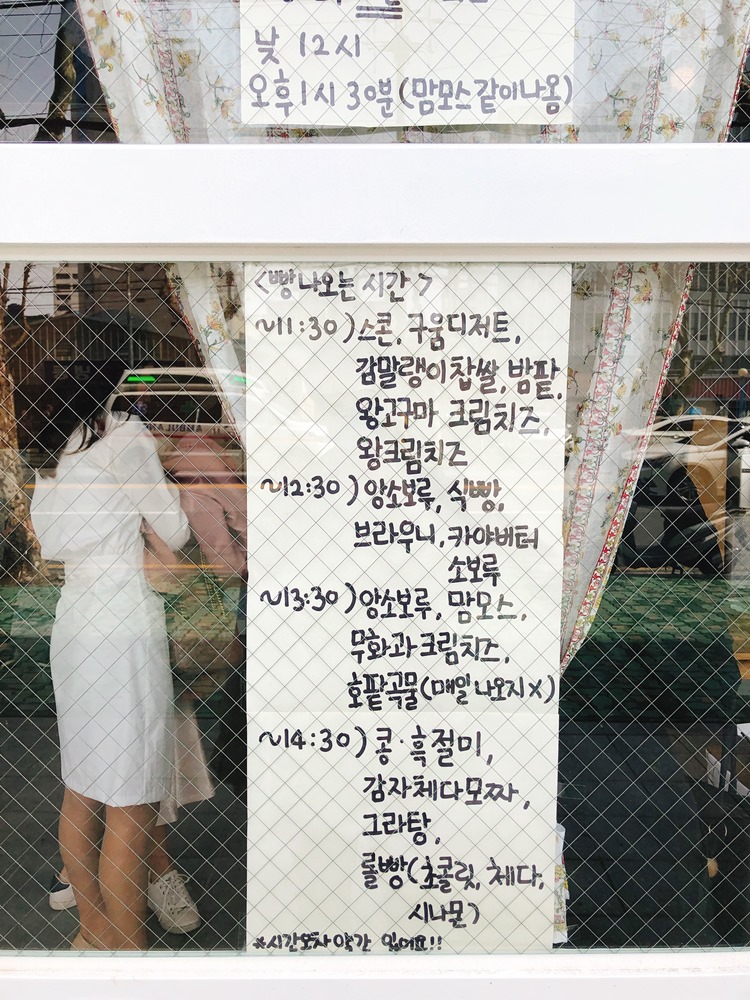 낮 12시
오후 1시 30분 (맘모스 같이 나옴)
<빵 나오는 시간>
~11:30) 스콘, 구움디저트,
감말랭이찹쌀, 밤팥,
왕고구마 크림치즈,
왕크림치즈
~12:30) 앙소보루, 식빵,
브라우니, 카야버터
소보루
~13:30) 앙소보루, 맘모스,
무화과크림치즈,
호팥곡물(매일 나오지X)
~14:30) 콩·흑절미,
감자체다모짜,
그라탕,
롤빵(초콜릿, 체다,
시나몬)
*시간오차 약간 있어요!!